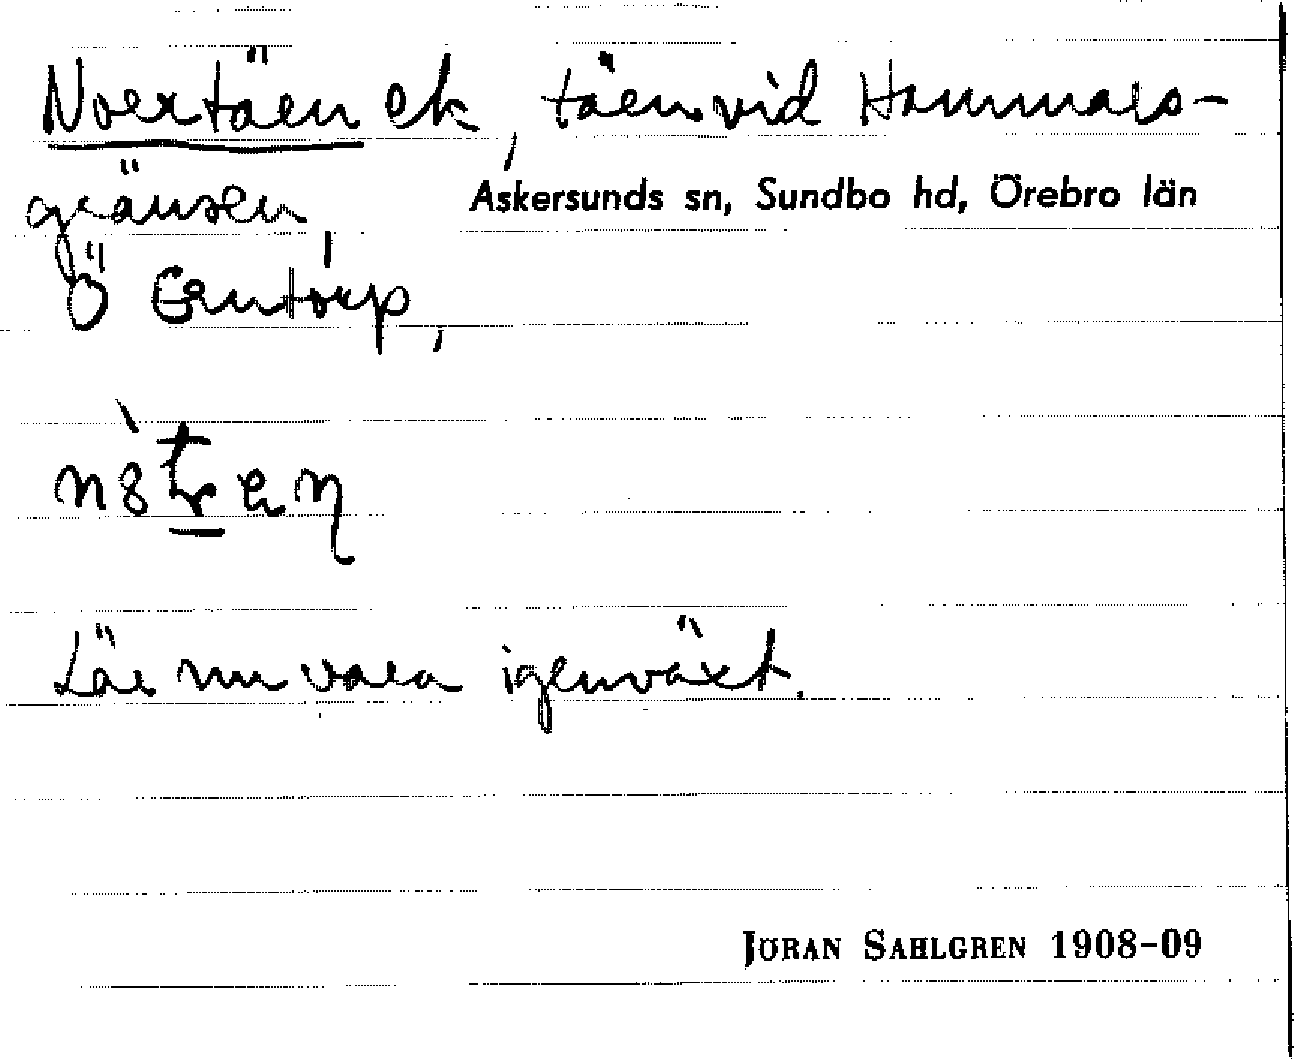 Norrtärn ek, tärn vid Hammars-
gränsen,
Askersunds sn, Sundbo hd, Örebro län
Ö Erntorp,
Lär nu vara igenväxt.
JÖRAN SAHLGREN 1908-09